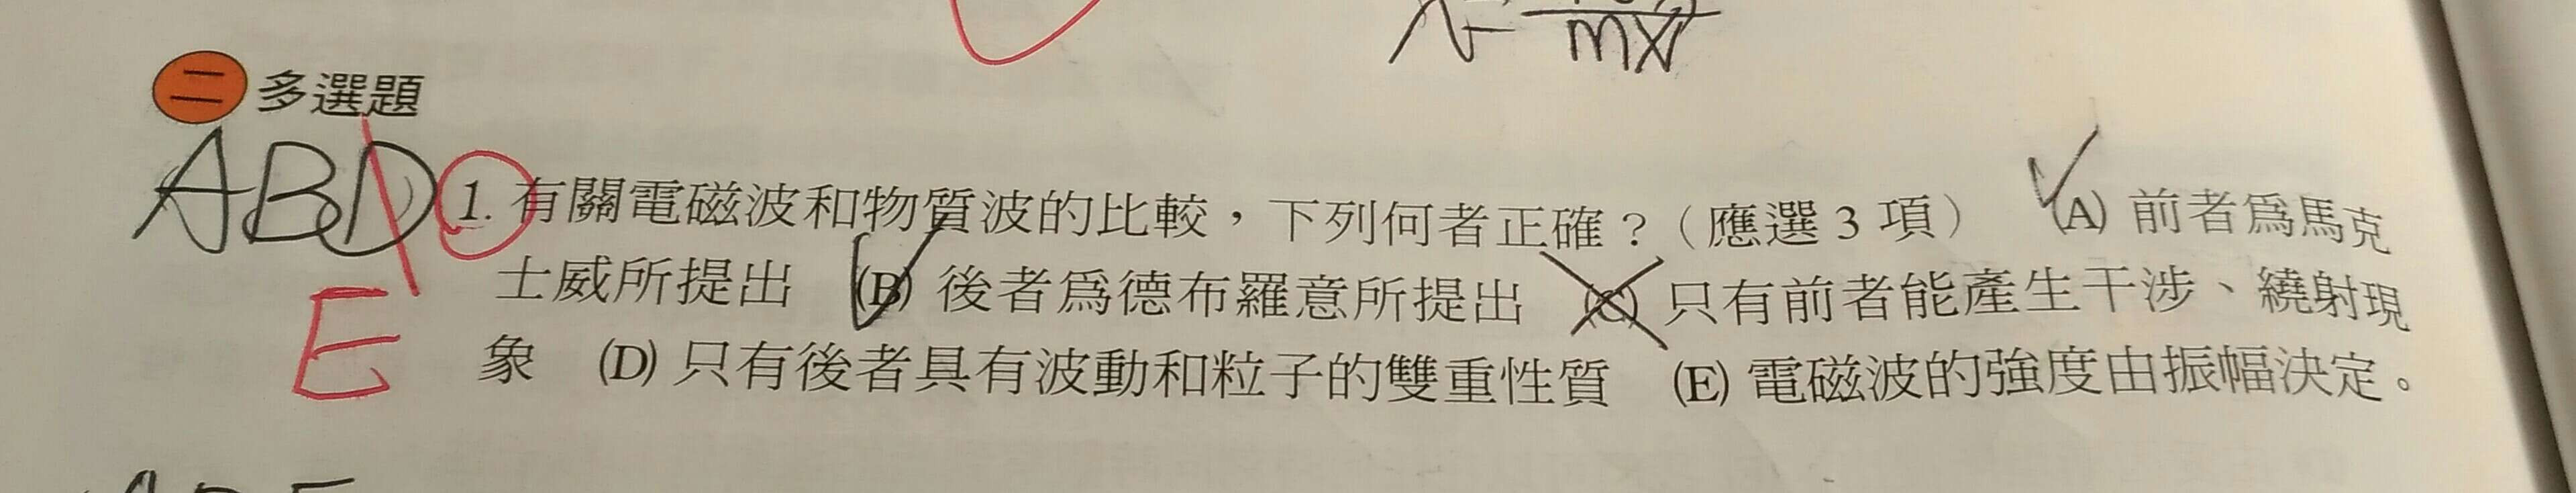 二 多選題
ABD 1. 有關電磁波和物質波的比較，下列何者正確？（應選 3 項） (A) 前者為馬克
士威所提出 (B) 後者為德布羅意所提出 (C) 只有前者能產生干涉、繞射現
E 象 (D) 只有後者具有波動和粒子的雙重性質 (E) 電磁波的強度由振幅決定。